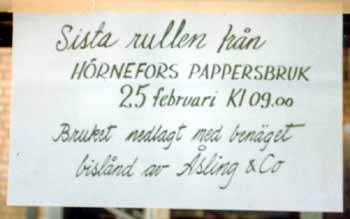 Sista rullen från
HÖRNEFORS PAPPERSBRUK
25 februari Kl 09.00
Bruket nedlagt med benäget
bistånd av Åsling & Co